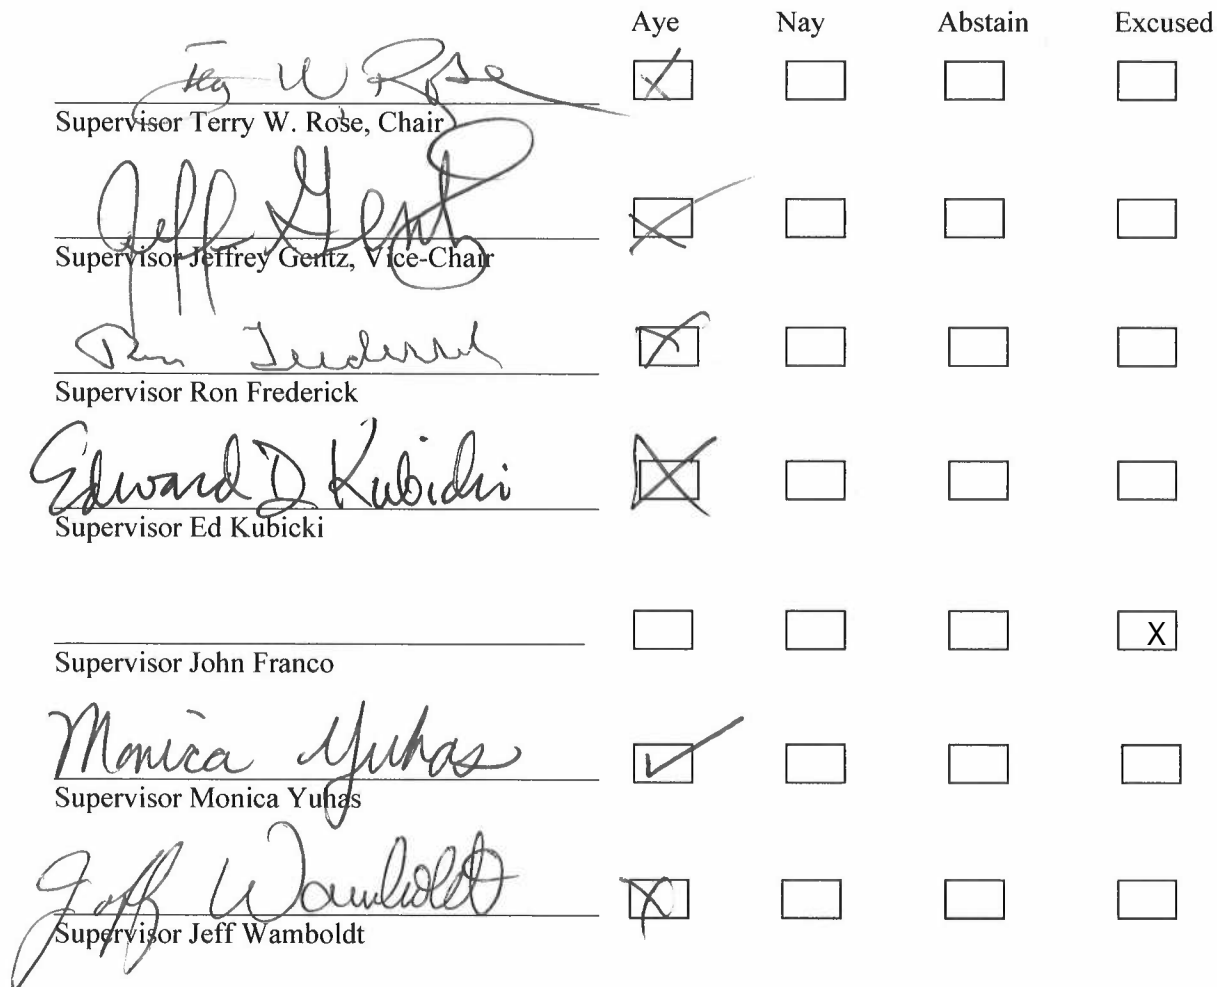 Aye Nay Abstain Excused
Terry W Rose
Supervisor Terry W. Rose, Chair
Jeff Gentz
Supervisor Jeffrey Gentz, Vice-Chair
Ron Frederick
Supervisor Ron Frederick
Edward D Kubicki
Supervisor Ed Kubicki
X
Supervisor John Franco
Monica Yuhas
Supervisor Monica Yuhas
Jeff Wamboldt
Supervisor Jeff Wamboldt